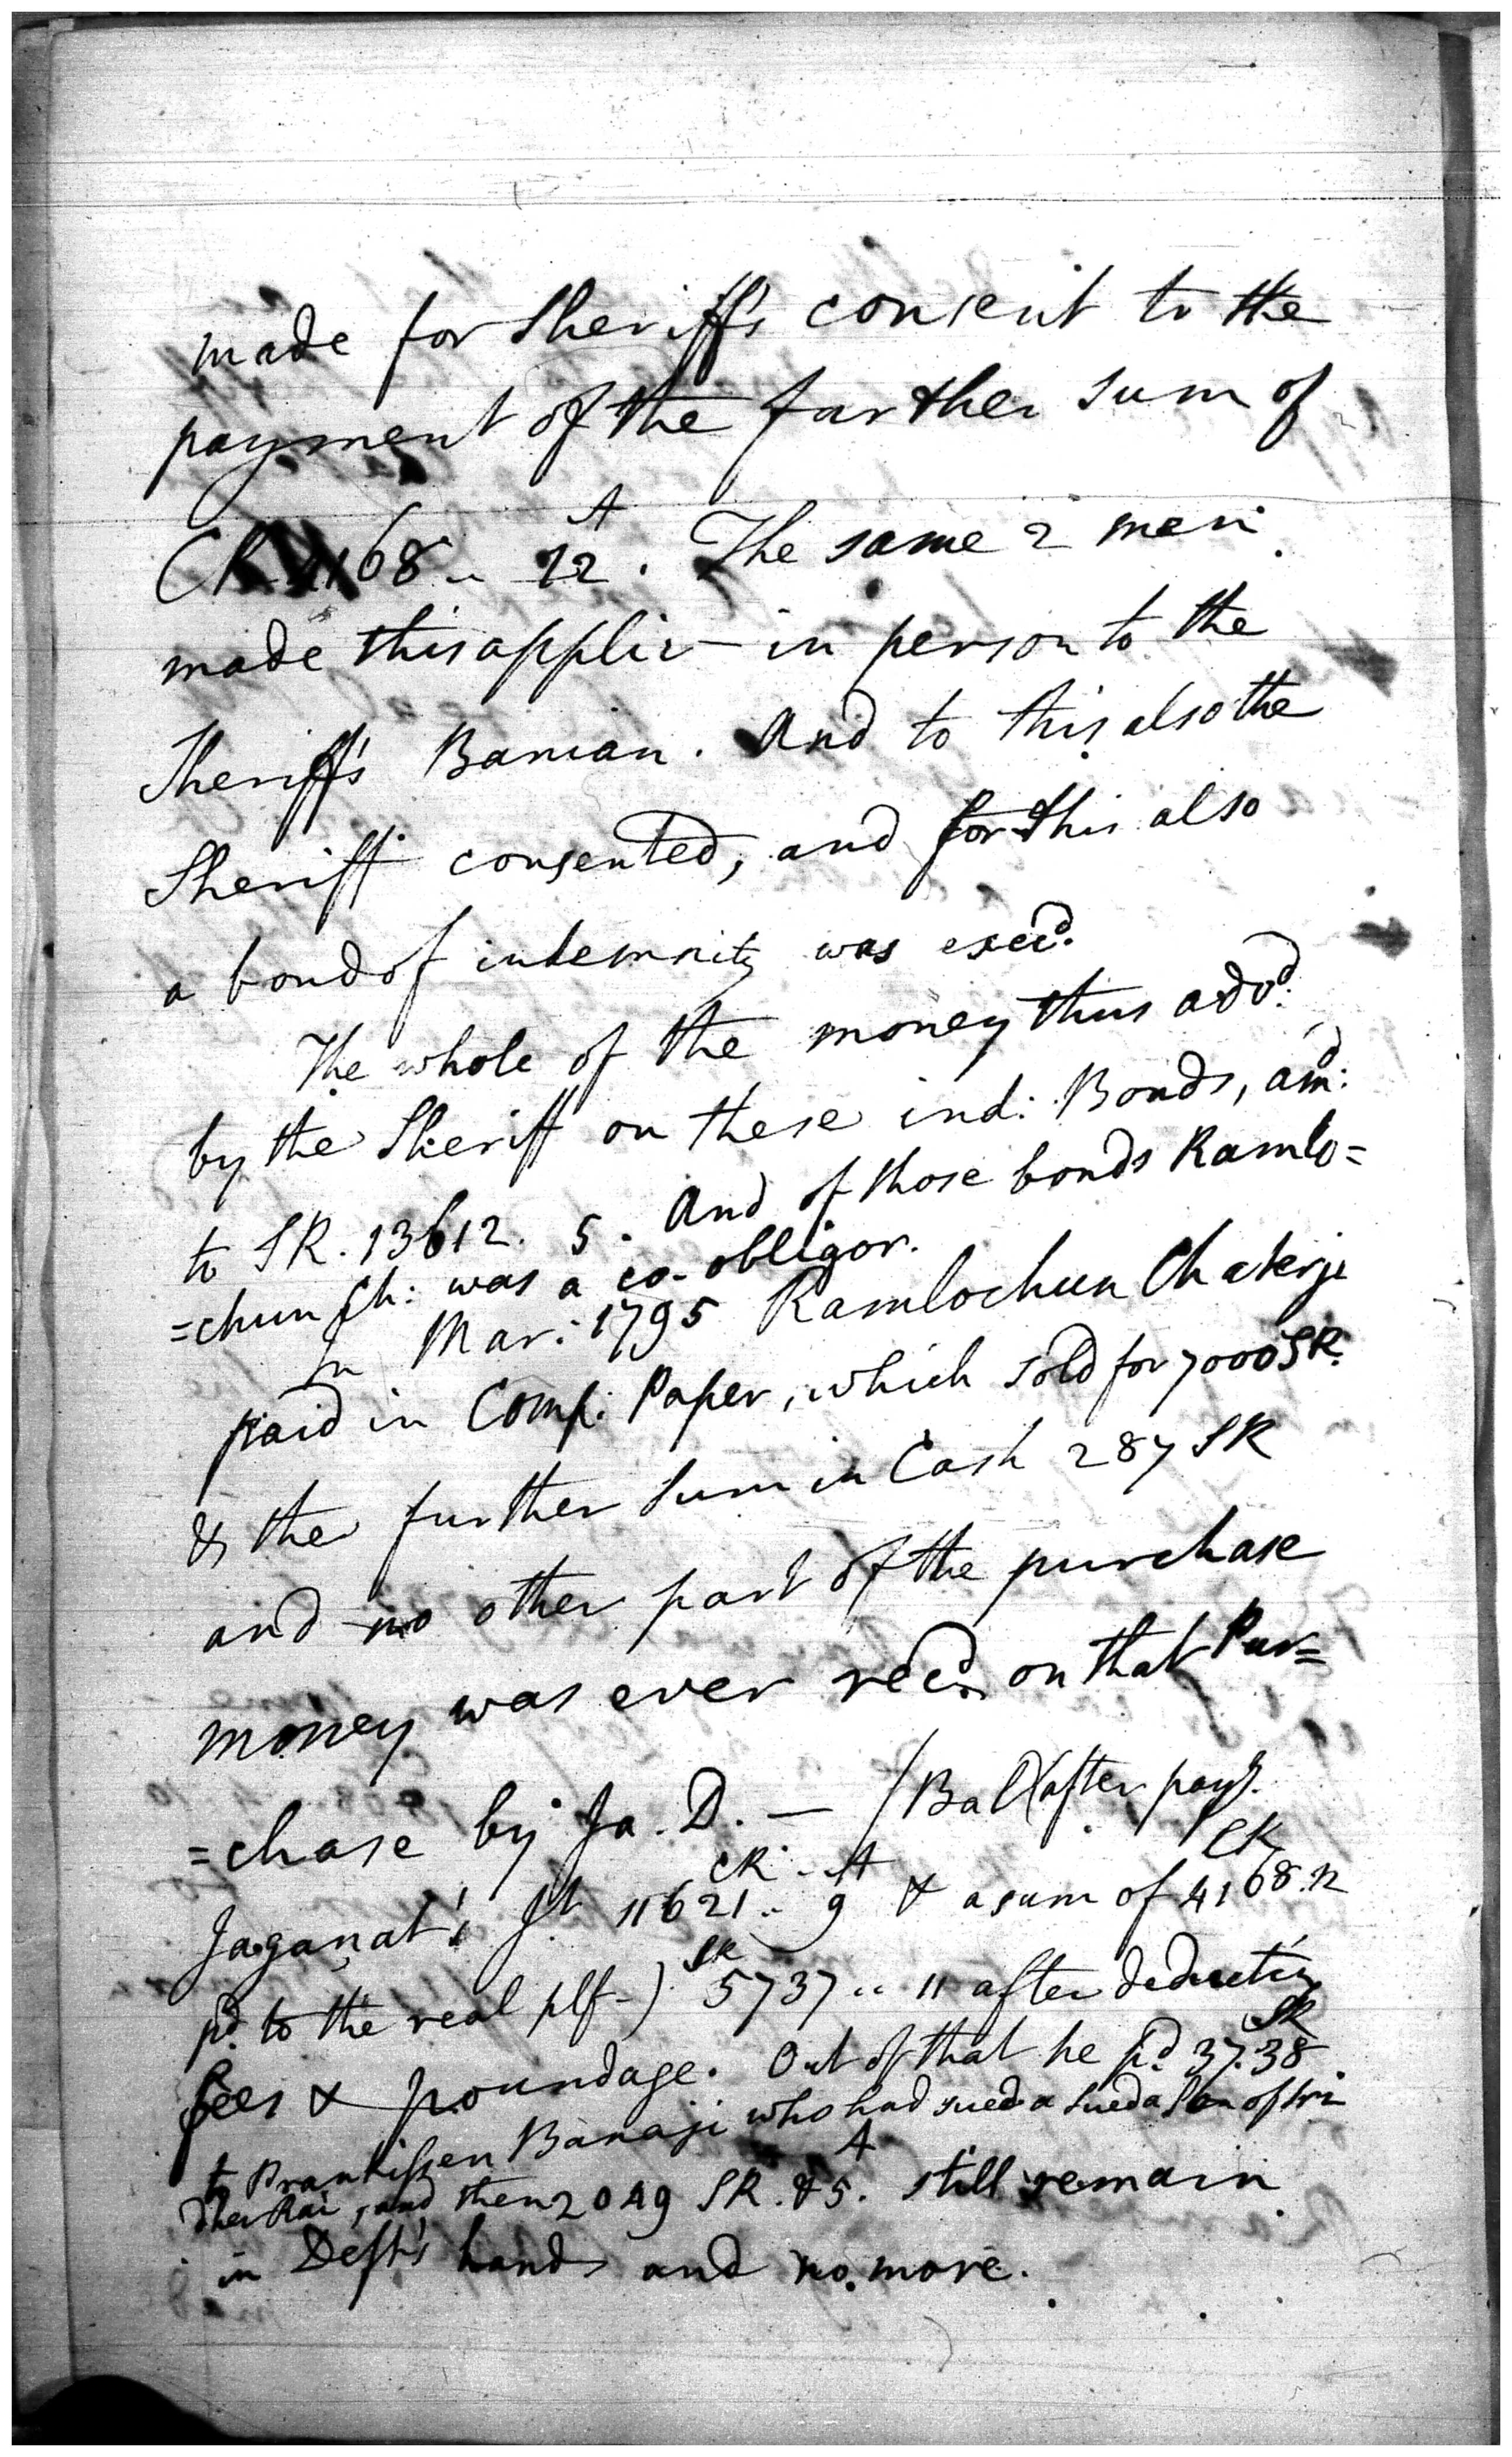 made for Sheriff's consent to the
payment of the farther sum of
CR 4168 .. 12 A. The same 2 men
made this applic— in person to the
Sheriff's Banian. And to this also the
Sheriff consented, and for this also
a bond of indemnity was exec'd.
The whole of the money thus adv'd:
by the Sheriff on these ind: Bonds, am'd:
to SR. 13612. 5. And of those bonds Ramlo=
=chun Ch: was a co-obligor.
In Mar: 1795 Ramlochun Chaterje
paid in Comp: Paper, which sold for 7000 SR.
& the further Sum in Cash 287 SR
and no other part of the purchase
money was ever rec'd. on that Pur=
=chase by Ja. D. — (Bal (after pay't.
Jaganat's J't CR 11621 .. A 9 & a sum of CR 4168.12
p'd. to the real plf—) SR 5737 .. 11 after deducting
fees & poundage. Out of that he p'd SR 37.38
to Prankissen Banaji who had sued a sued a Son of Sri
Dher Rai, and then 2049 SR. & 5 A. still remain
in Deft's hands and no more.